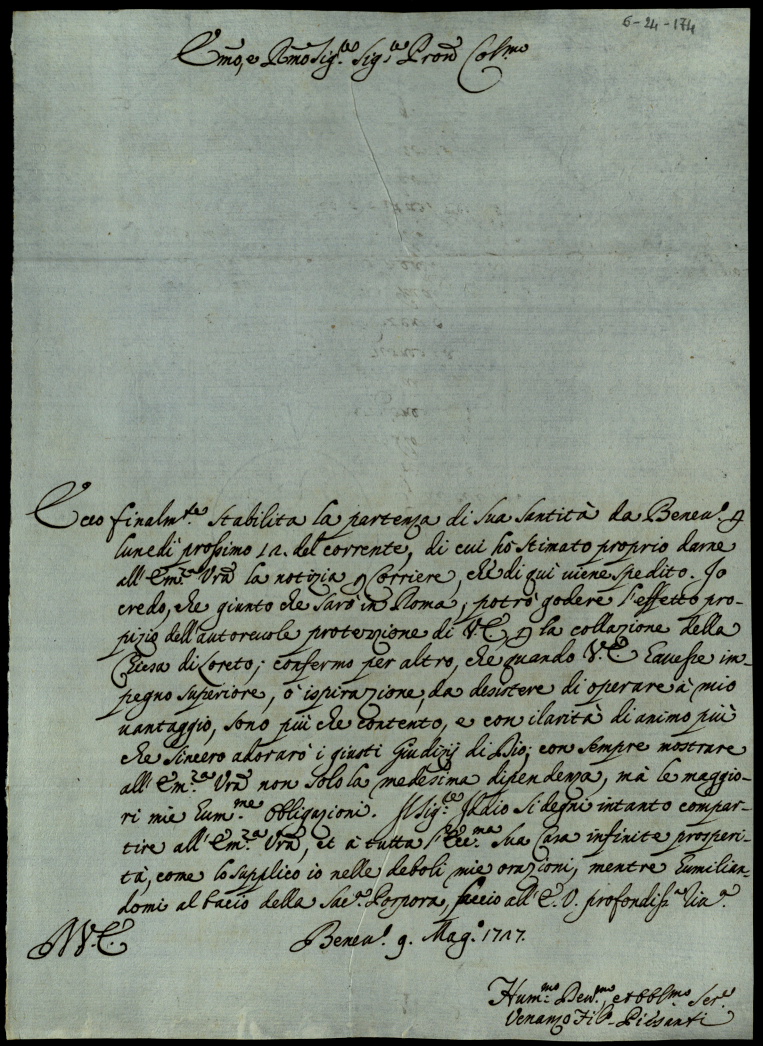 6-24-174
Em̃o, e Rm̃o Sig.re Sig.re Pron̄e Col.mo
Ecco finalm.te stabilita la partenza di sua Santità da Benev.o p
lunedì prossimo 12. del corrente, di cui hò stimato proprio darne
all'Em.za Vrā la notizia p Corriere, chè di quì viene spedito. Io
credo, che giunto che sarò in Roma, potrò godere l'effetto pro-
pizio dell'autorevole protezzione di V.E. p la collazione della
Chiesa di Loreto; confermo per altro, che quando V.E. havesse im-
pegno superiore, ò ispirazione, da desistere di operare à mio
vantaggio, sono più che contento, e con ilarità di animo più
che sincero adorarò i giusti Giudizij di Dio; con sempre mostrare
all'Em.za Vrā non solo la medesima dipendenza, mà le maggio-
ri mie hum.me obligazioni. Il Sig.re Iddio si degni intanto compar-
tire all'Em.za Vrā, et à tutta l'Ecc.ma sua Casa infinite prosperi-
tà, come lo supplico io nelle deboli mie orazioni, mentre humilian-
domi al bacio della Sac.a Porpora, faccio all'E.V. profondiss.a riv.a
Benev.o 9. Mag.o 1727.
Hum.mo Dev.mo, et obbl.mo Ser.e
Venanzo Fil.o Piersanti